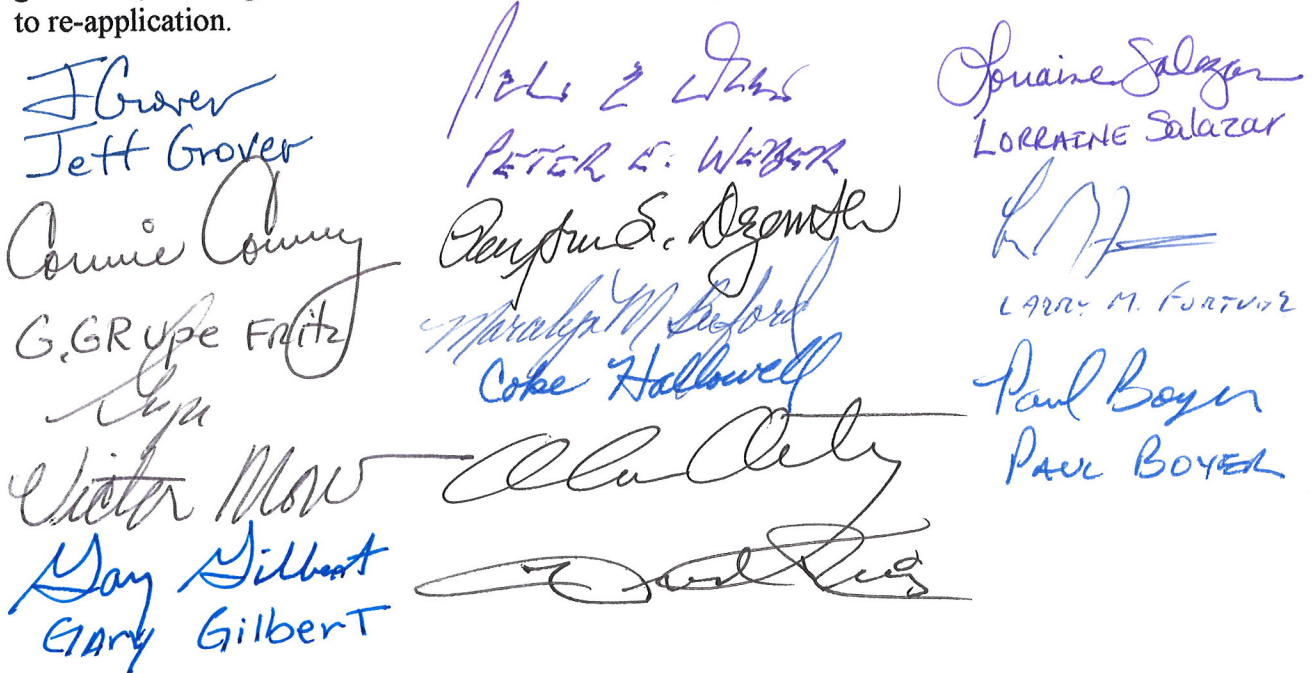 to re-application.
J Grover
Jeff Grover
Connie Conway
G. GRUPe FRitz
Victor Mow
Gary Gilbert
GARy GilberT
Peter E Weber
PETER E. WEBER
S.
Maralyn M Buford
Coke Hallowell
Alan
David King
Lorraine Salazar
LORRAINE Salazar
LARRY M. FORTUNE
Paul Boyer
PAUL BOYER